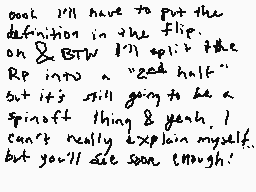 oooh I'll have to put the
definition in the flip.
oh & BTW I'll split the
RP into a "2nd half"
but it's still going to be a
spinoff thing & yeah, I
can't really explain myself..
but you'll see soon enough!